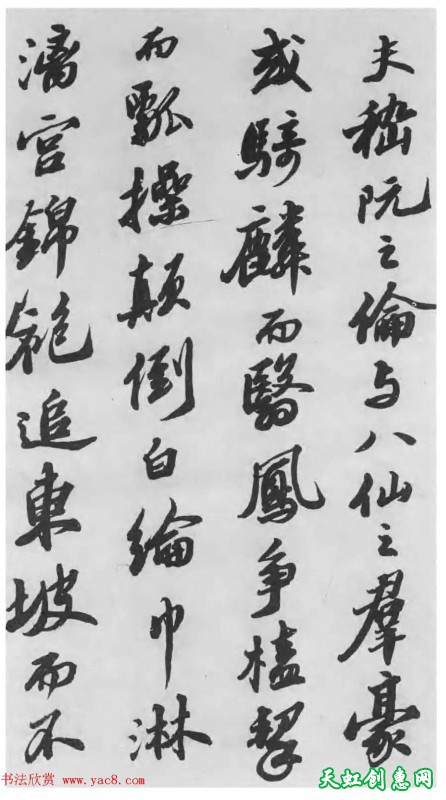 夫嵇阮之倫与八仙之羣豪
或騎麟而翳鳳争榼挈
而瓢操顛倒白綸巾淋
漓宮錦袍追東坡而不
书法欣赏 www.yac8.com
天虹创惠网